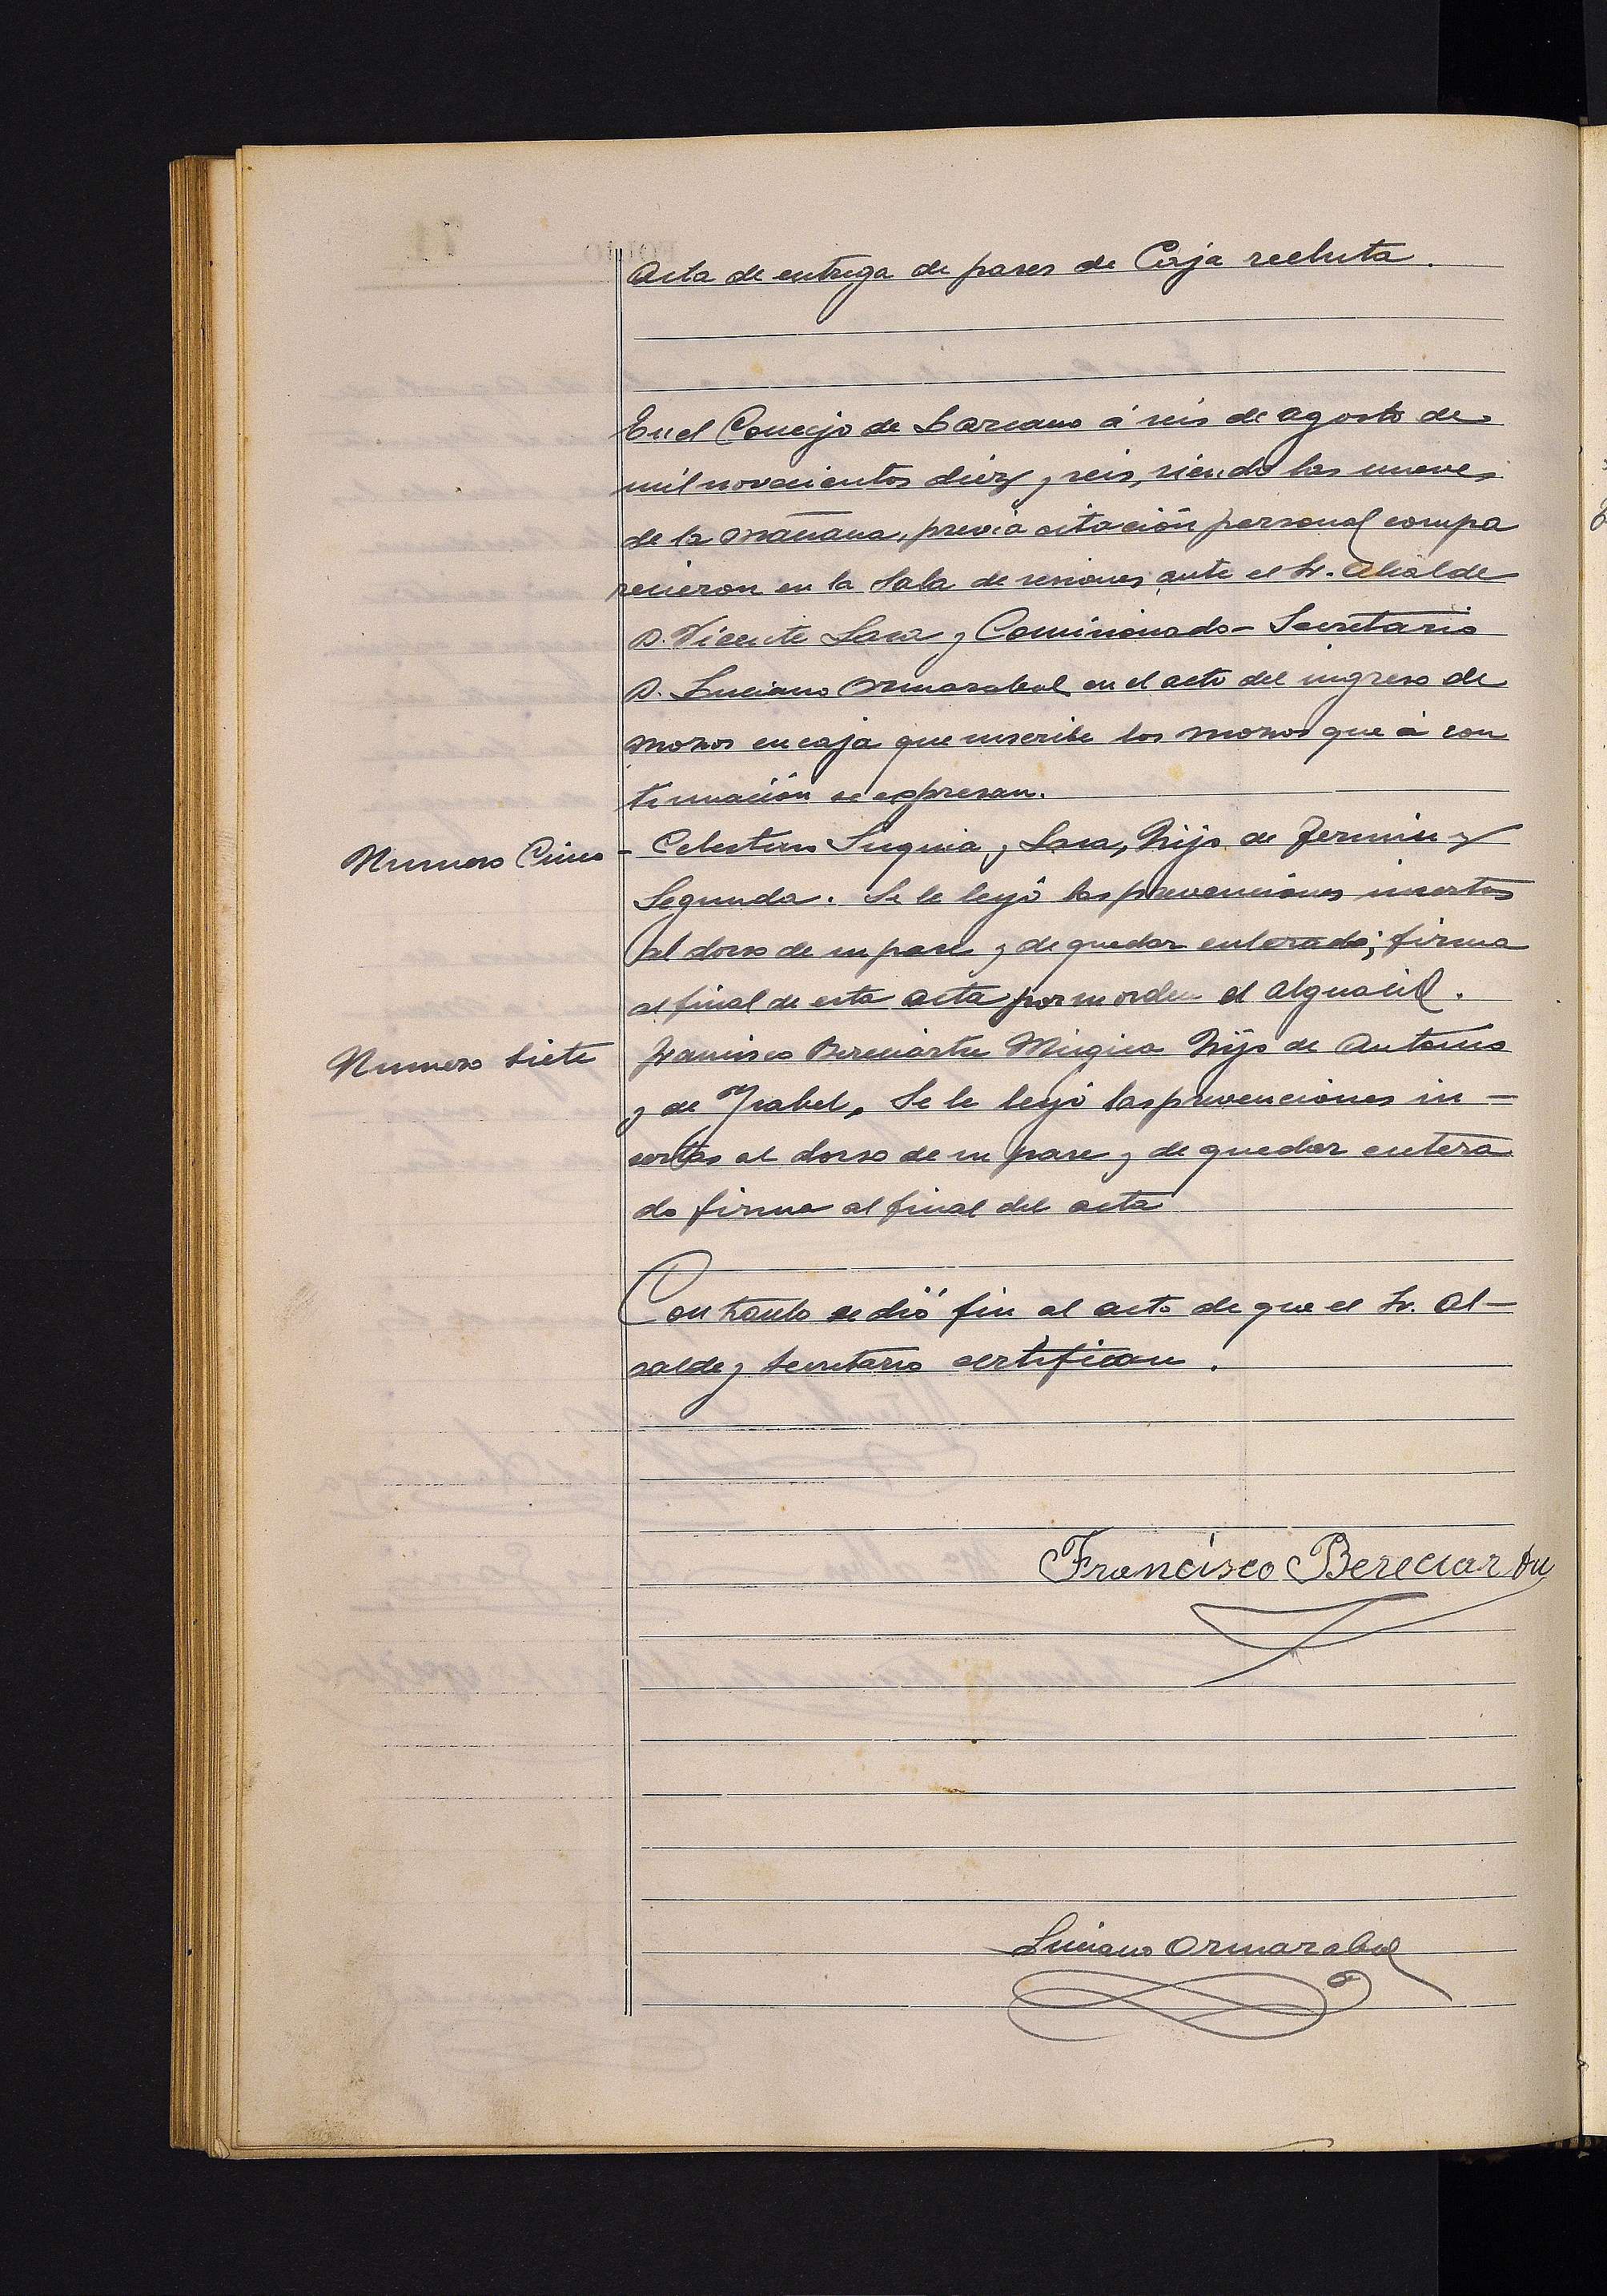 Acta de entrega de pases de Caja recluta.
En el Concejo de Lazcano á seis de agosto de
mil novecientos diez y seis, siendo las nueve,
de la mañana, previa citación personal compa
recieron en la Sala de sesiones ante el Sr. Alcalde
D. Vicente Lasa y Comisionado - Secretario
D. Luciano Ormazabal en el acto del ingreso de
mozos en caja que suscribe los mozos que á con
tinuación se expresan.
Numero Cinco - Celestino Suquia y Lasa, hijo de Fermin y
Segunda. Se le leyó las prevenciones insertas
al dorso de su pase y de quedar enterado; firma
al final de esta acta por su orden el alguacil.
Numero Siete Francisco Bereciartu Mugica hijo de Antonio
y de Ysabel, Se le leyó las prevenciones in -
sertas al dorso de su pase y de quedar entera
do firma al final del acta
Con tanto se dió fin al acto de que el Sr. Al -
calde y Secretario certifican.
Francisco Bereciartu
Luciano Ormazabal